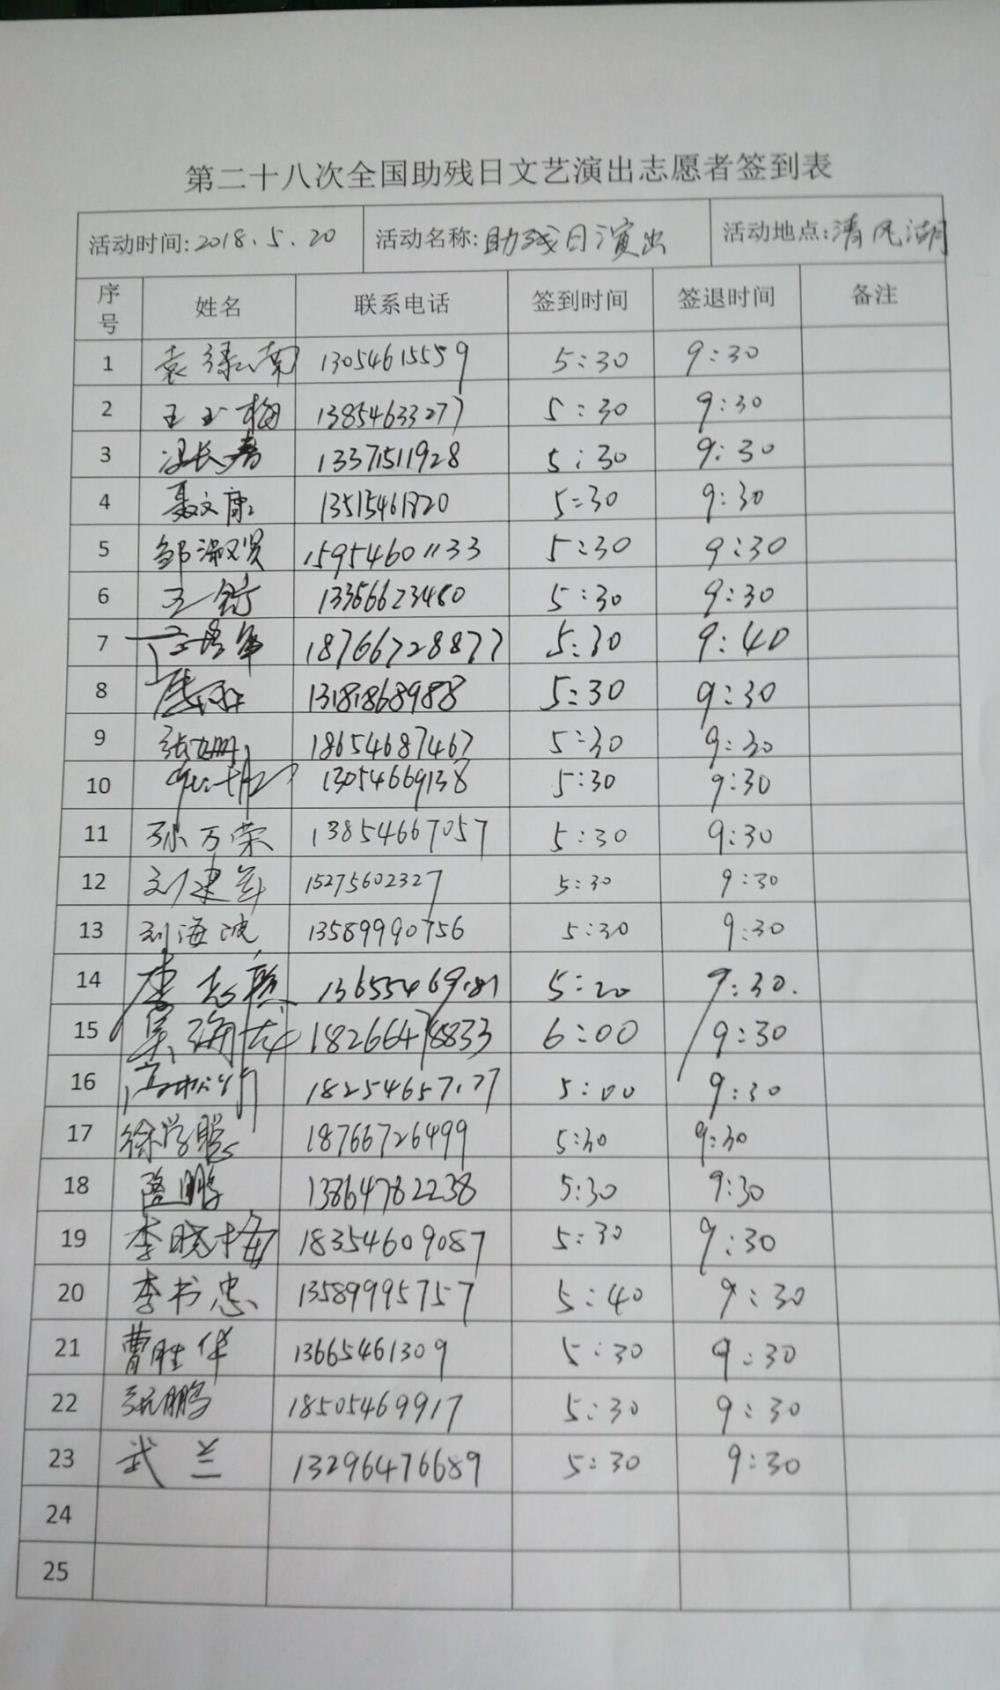 第二十八次全国助残日文艺演出志愿者签到表
活动时间:2018.5.20 活动名称:助残日演出 活动地点:清风湖
序号 姓名 联系电话 签到时间 签退时间 备注
1 袁 南 13054615559 5:30 9:30
2 王玉梅 13854633277 5:30 9:30
3 冯长春 13371511928 5:30 9:30
4 聂文康 13515461820 5:30 9:30
5 邹淑贤 15954601133 5:30 9:30
6 王 13366623480 5:30 9:30
7 18766728877 5:30 9:40
8 13181868988 5:30 9:30
9 张姗姗 18654687467 5:30 9:30
10 13054669138 5:30 9:30
11 孙万荣 13854667057 5:30 9:30
12 刘建军 15275602327 5:30 9:30
13 刘海波 13589990756 5:30 9:30
14 李志 5:20 9:30.
15 吴海龙 18266478833 6:00 9:30
16 18254657177 5:00 9:30
17 徐学聪 18766726499 5:30 9:30
18 鹏 13864782238 5:30 9:30
19 李晓梅 18354609087 5:30 9:30
20 李书忠 13589995757 5:40 9:30
21 曹胜华 13665461309 5:30 9:30
22 张鹏 18505469917 5:30 9:30
23 武兰 13296476689 5:30 9:30
24
25